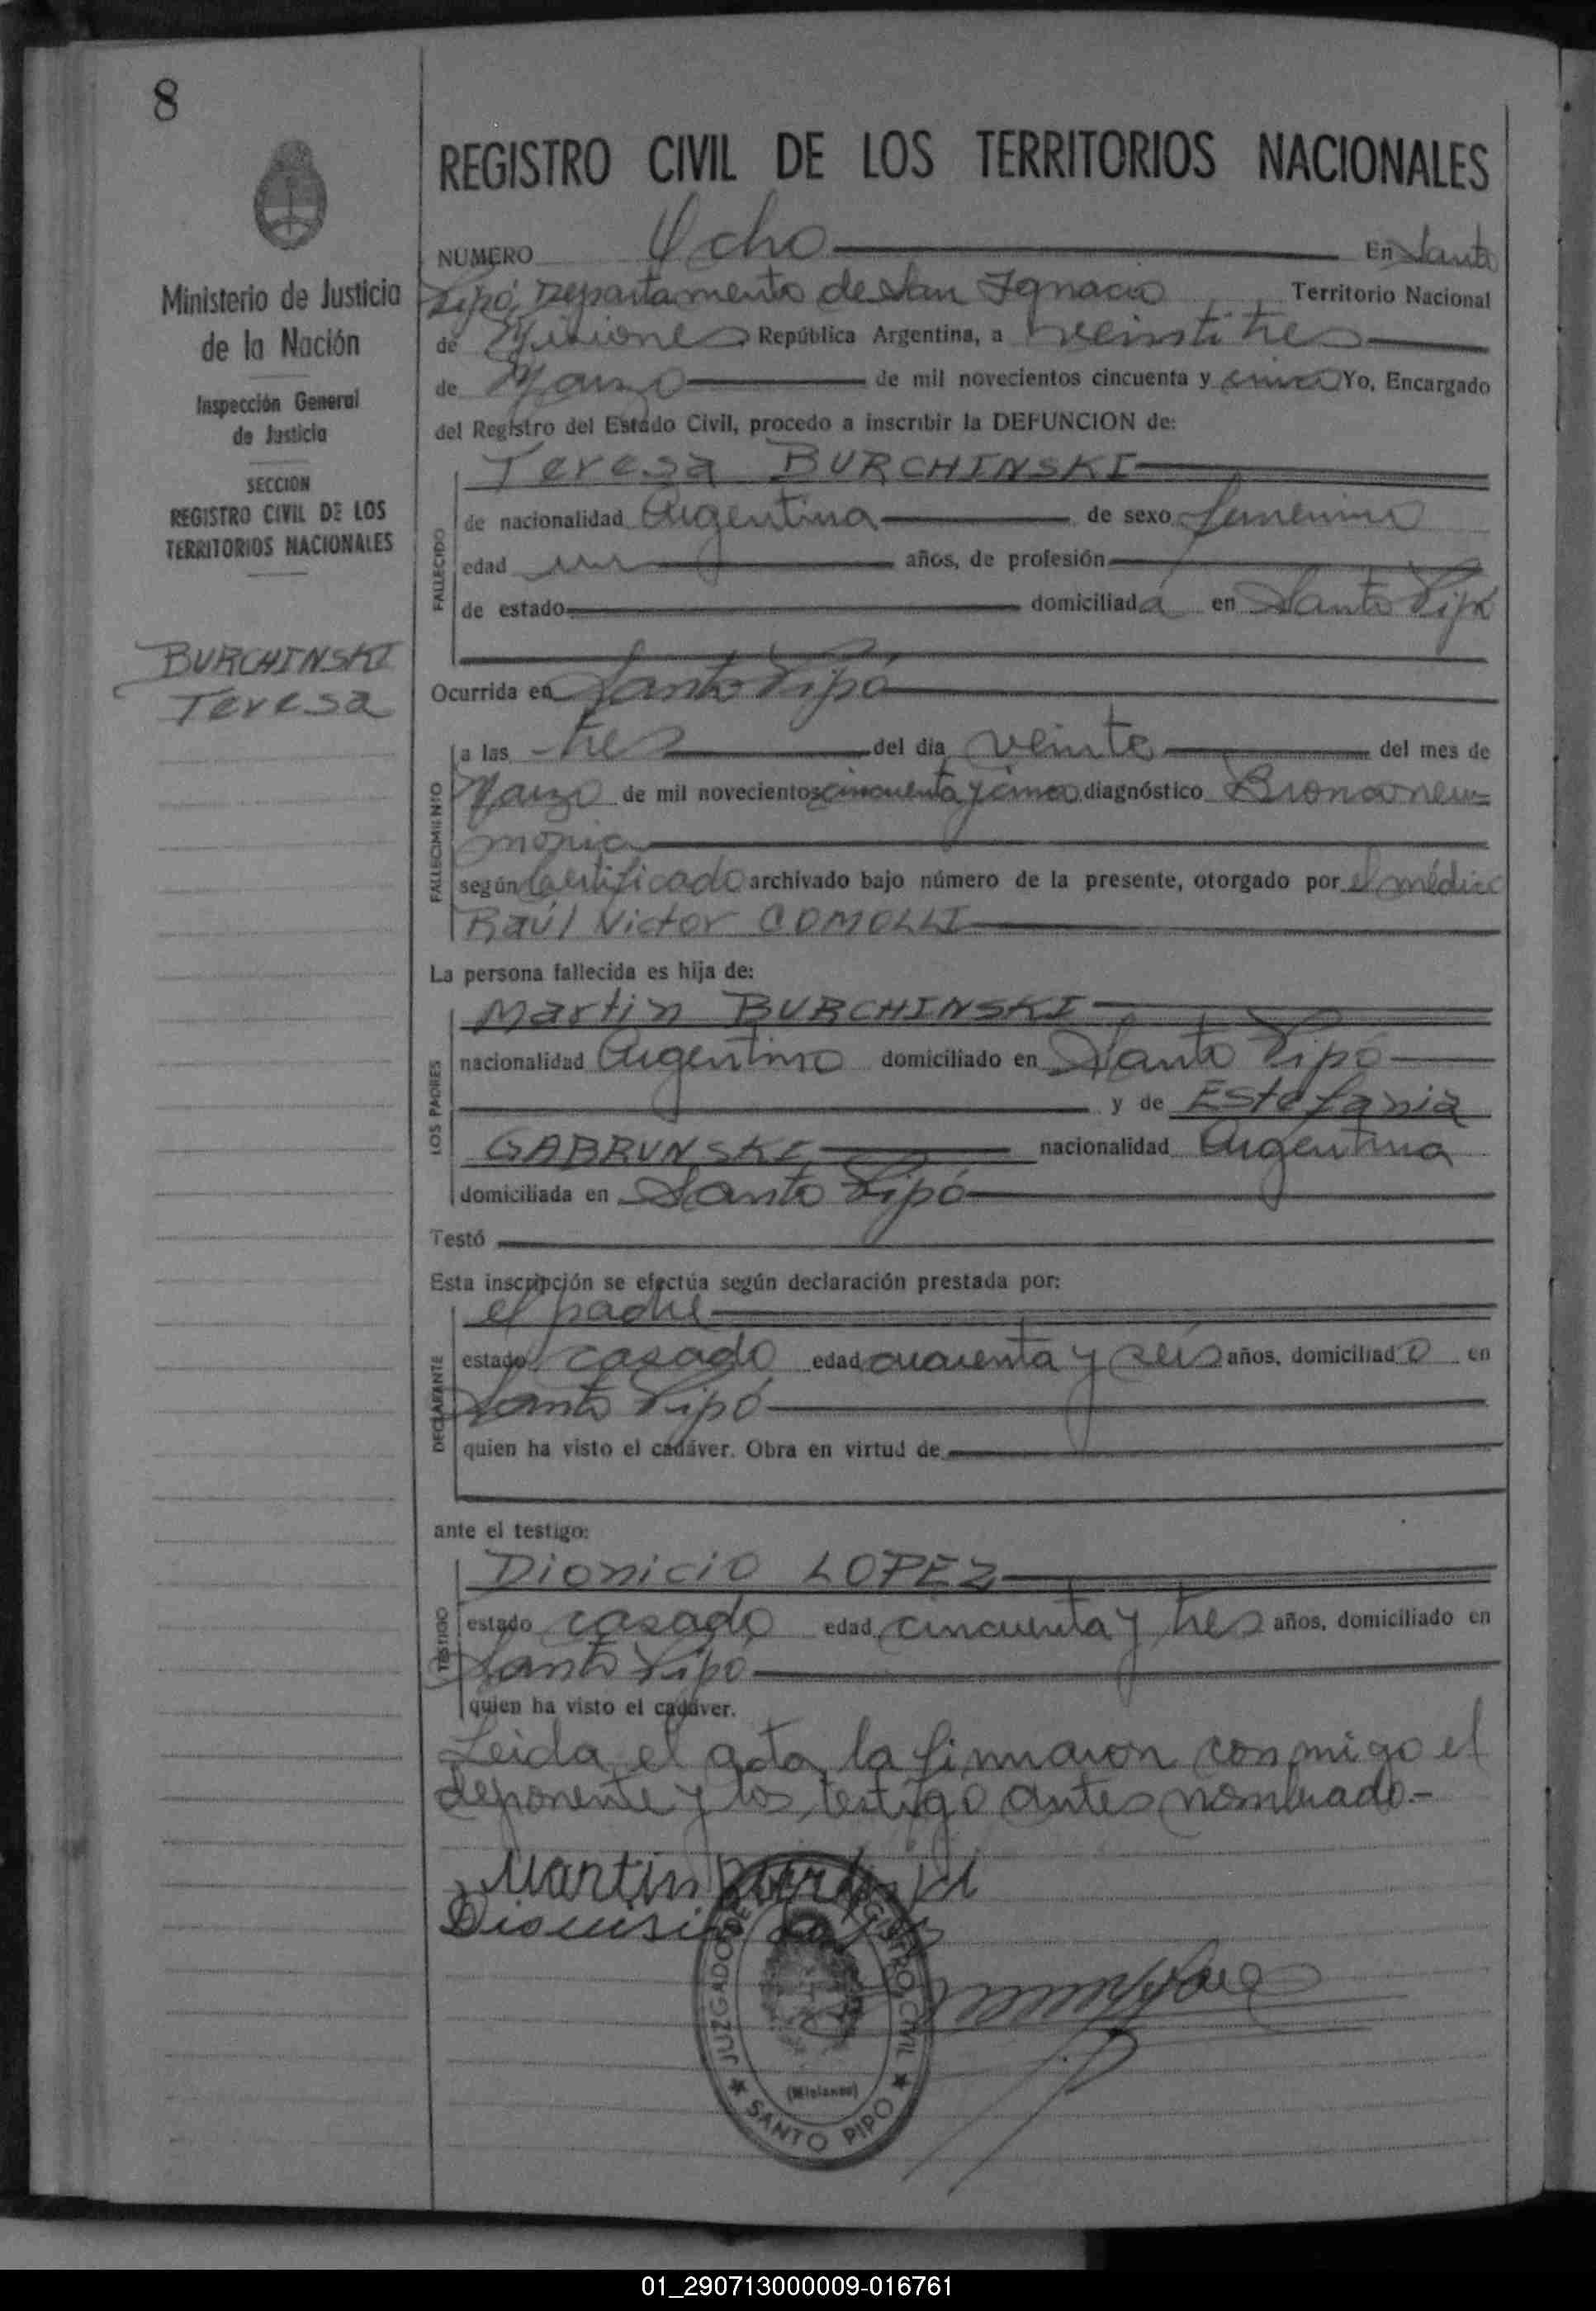 8
Ministerio de Justicia
de la Nación
Inspección General
de Justicia
SECCION
REGISTRO CIVIL DE LOS
TERRITORIOS NACIONALES
BURCHINSKI
Teresa
REGISTRO CIVIL DE LOS TERRITORIOS NACIONALES
NUMERO Ocho En Santo
Pipó, Departamento de San Ignacio, Territorio Nacional
de Misiones República Argentina, a veintitres
de Marzo de mil novecientos cincuenta y cinco Yo, Encargado
del Registro del Estado Civil, procedo a inscribir la DEFUNCION de:
Teresa BURCHINSKI
FALLECIDO
de nacionalidad Argentina de sexo femenino
edad un años, de profesión
de estado domiciliada en Santo Pipó
Ocurrida en Santo Pipó
FALLECIMIENTO
a las tres del día veinte del mes de
Marzo de mil novecientos cincuenta y cinco diagnóstico Bronconeu=
monia
según Certificado archivado bajo número de la presente, otorgado por el médico
Raúl Victor COMOLLI
La persona fallecida es hija de:
LOS PADRES
Martin BURCHINSKI
nacionalidad Argentino domiciliado en Santo Pipó
y de Estefania
GABRUNSKI nacionalidad Argentina
domiciliada en Santo Pipó
Testó
Esta inscripción se efectúa según declaración prestada por:
DECLARANTE
el padre
estado casado edad cuarenta y seis años, domiciliado en
Santo Pipó
quien ha visto el cadáver. Obra en virtud de
ante el testigo:
TESTIGO
Dionicio LOPEZ
estado casado edad cincuenta y tres años, domiciliado en
Santo Pipó
quien ha visto el cadáver.
Leida el acta la firmaron conmigo el
deponente y los testigo antes nombrado.-
Martin
JUZGADO DE REGISTRO CIVIL
(Misiones)
SANTO PIPO
01_290713000009-016761